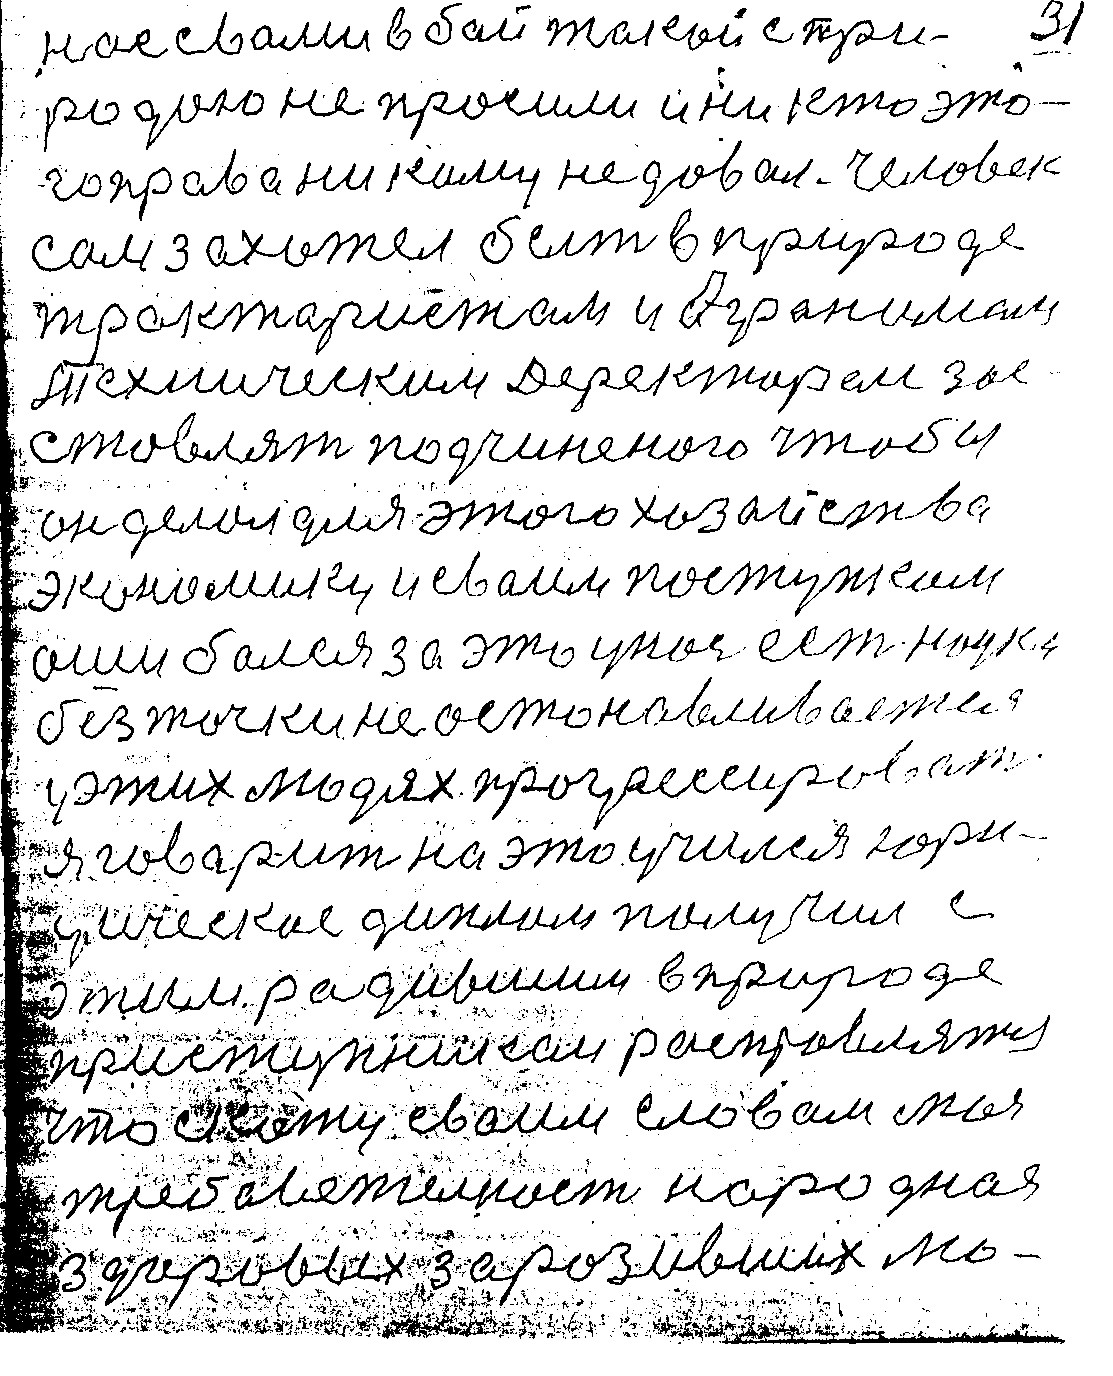 нас свами в бай такой с при- 31
родою не просили и ни кто это-
го права ни кому не довал. Человек
сам захотел быт в природе
трактаристам и Агранимам
Техническим Деректорам зас-
ставлят подчиненого чтобы
он делал для этого хозайства
экономику и сваим поступкам
ошибался за это у нас ест наука
без точки не астонавливается
у этих людях прогрессироват.
я говарит на это учился юри-
дическае диплом получил с
этим радившим в природе
приступникам расправлятся
что скажу сваим словам моя
требавателност народная
здоровых заразивших лю-